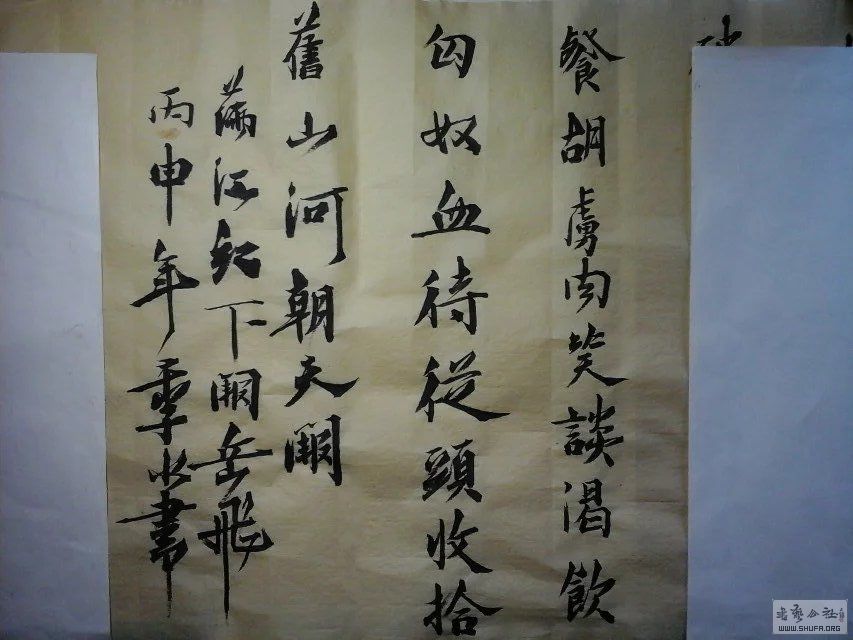 餐胡虜肉笑談渴飲
匈奴血待從頭收拾
舊山河朝天闕
滿江紅下闕岳飛
丙申年季水書
書藝公社
WWW.SHUFA.ORG